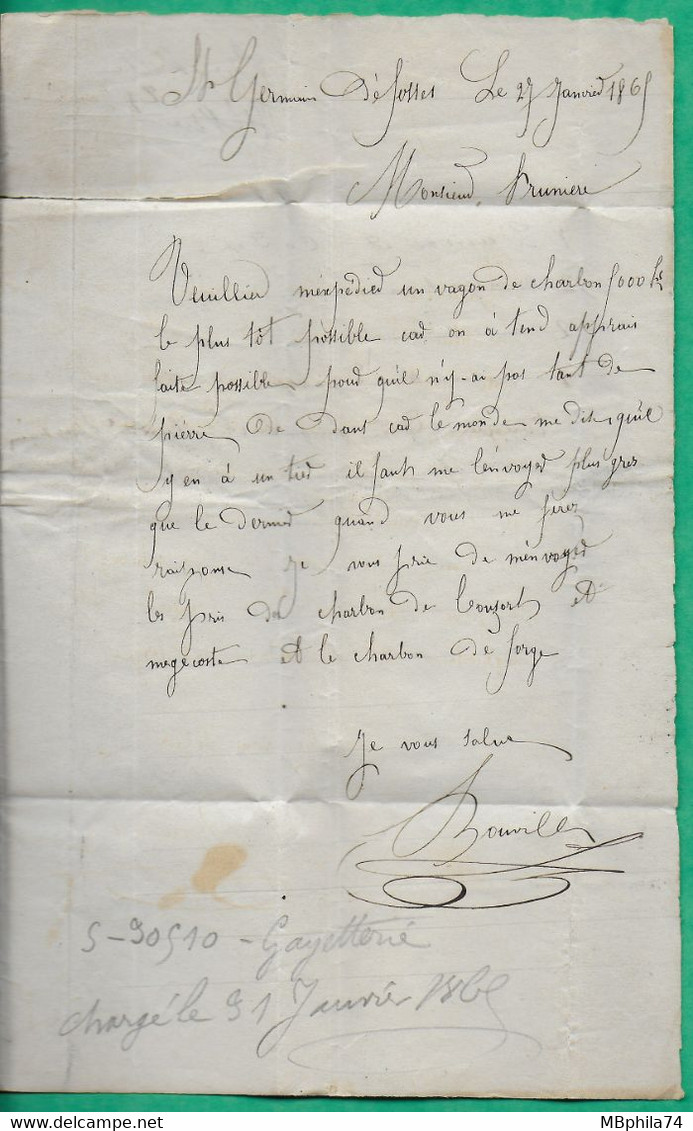 St Germain Défosses Le 27 Janvied 1865
Monsieud Pruniere
Veuillied m'expédied un vagon de charbon 5000 ks
le plus tôt possible cad on à tend apprais
faite possible poud qu'il n'y-ai pas tant de
pièrre de dans cad le monde me dit qu'il
y en à un tied il faut me l'envoyed plus gres
que le dernied quand vous me ferez
raiponse je vous prie de m'envoyed
les pris du charbon de et
megecoste et le charbon de forge
Je vous salue
Bouville
5-30510 - Gayetterie
chargé le 31 Janvier 1865
MBphila74